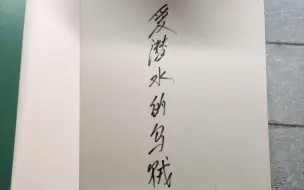 爱潜水的乌贼